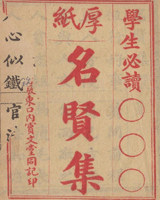 學生必讀
厚紙
名賢集
內寶文堂同記印
心似鐵
官